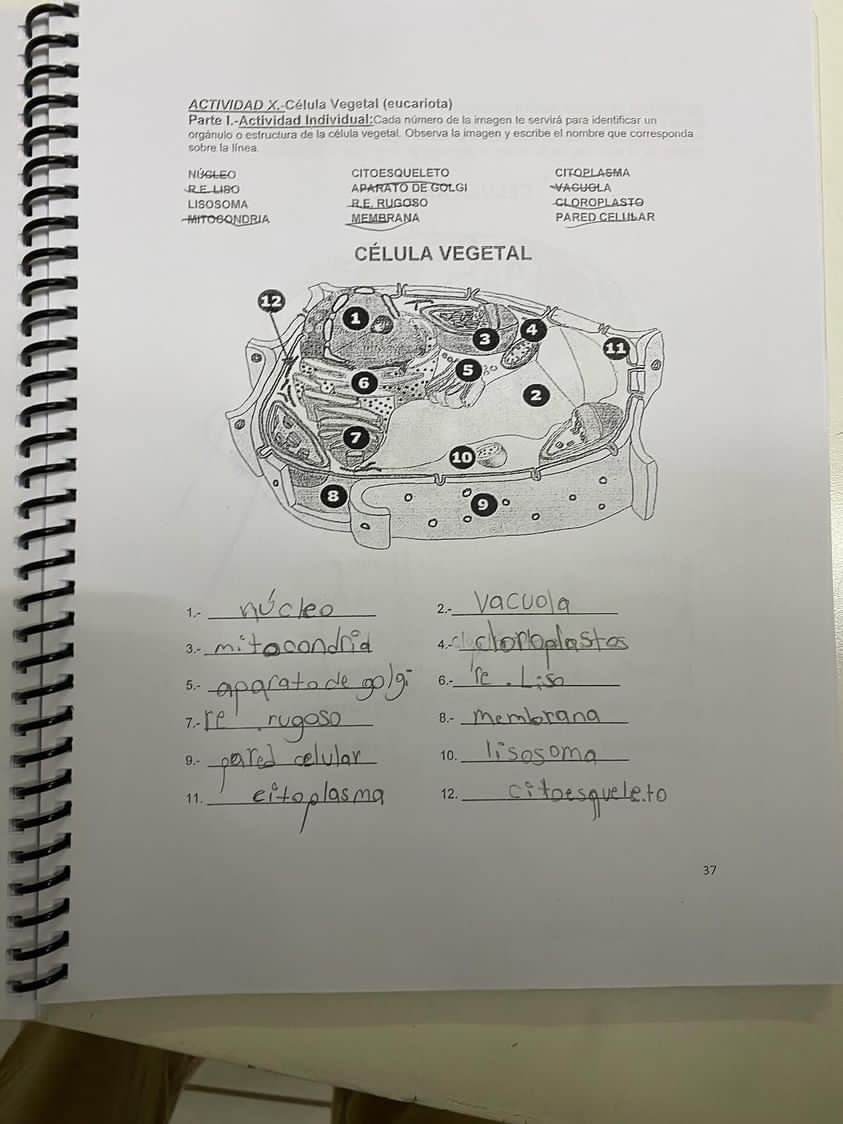 ACTIVIDAD X.-Célula Vegetal (eucariota)
Parte I.-Actividad Individual:Cada número de la imagen te servirá para identificar un
orgánulo o estructura de la célula vegetal. Observa la imagen y escribe el nombre que corresponda
sobre la línea.
NÚCLEO CITOESQUELETO CITOPLASMA
R.E. LISO APARATO DE GOLGI VACUOLA
LISOSOMA R.E. RUGOSO CLOROPLASTO
MITOCONDRIA MEMBRANA PARED CELULAR
CÉLULA VEGETAL
12
1
3
4
11
5
6
2
7
10
8
9
1.- núcleo 2.- vacuola
3.- mitocondria 4.- cloroplastos
5.- aparato de golgi 6.- re. Liso
7.- re. rugoso 8.- membrana
9.- pared celular 10. lisosoma
11. citoplasma 12. citoesqueleto
37